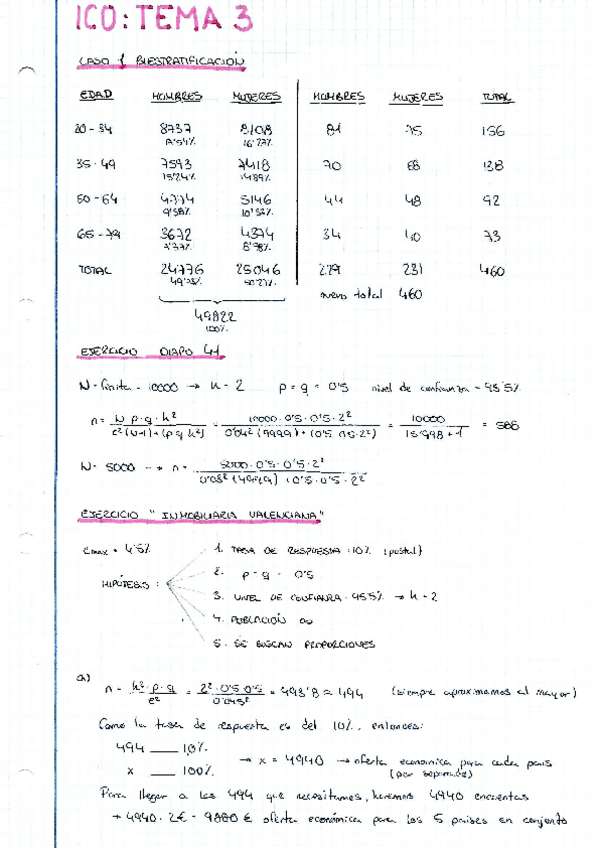 ICO: TEMA 3
CASO 1 BIESTRATIFICACIÓN
EDAD HOMBRES MUJERES HOMBRES MUJERES TOTAL
20-34 8737 8108 81 75 156
16'27%
35-49 7593 7418 70 68 138
15'24% 14'89%
50-64 4774 5146 44 48 92
9'58%
65-79 3672 4374 34 40 73
8'78%
TOTAL 24776 25046 229 231 460
49'73% 50'27%
nuevo total 460
49822
100%
EJERCICIO DIAPO 41
N = finita = 10000 → k = 2 p = q = 0'5 nivel de confianza = 95'5%
n = N·p·q·k² / e²(N-1)+(p·q·k²) = 10000·0'5·0'5·2² / 0'04²(9999)+(0'5·0'5·2²) = 10000 / 15'998+1 = 588
N = 5000 → n = 5000·0'5·0'5·2² / (4999) 0'5·0'5·2²
EJERCICIO "INMOBILIARIA VALENCIANA"
emax = 4'5%
HIPÓTESIS:
1. TASA DE RESPUESTA: 10% (postal)
2. p = q = 0'5
3. NIVEL DE CONFIANZA: 95'5% → k = 2
4. POBLACIÓN ∞
5. SE BUSCAN PROPORCIONES
a)
n = k²·p·q / e² = 2²·0'5·0'5 / 0'045² = 493'8 ≈ 494 (siempre aproximamos al mayor)
Como la tasa de respuesta es del 10%, entonces:
494 ___ 10%
x ___ 100%
→ x = 4940 → oferta económica para cada país
(por separado)
Para llegar a los 494 que necesitamos, haremos 4940 encuestas
→ 4940·2€ = 9880 € oferta económica para los 5 países en conjunto